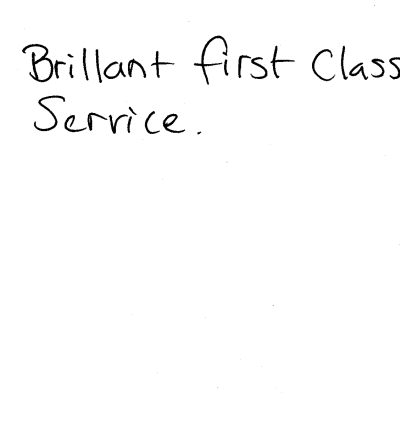 Brillant first Class
Service.